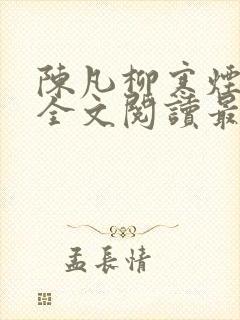 陳凡柳寒煙
全文閱讀最
孟長情